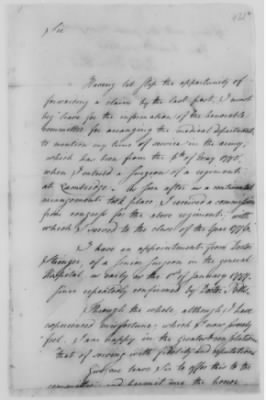 Sir
Having let slip the opportunity of
forwarding a claim by the last post, I must
beg leave for the information of the honorable
committee for arranging the medical department
to mention my time of service in the army,
which has been from the of May 1775,
when I entered a Surgeon of a regiment
at Cambridge. As soon after as a continental
arrangement took place I received a commission
from congress for the above regiment, with
which I served to the close of the year 1776.
I have an appointment from Doctor
of a Senior Surgeon in the general
Hospital, as early as the 1st of January 1777.
Since repeatedly confirmed by Doctr. Potts.
Through the whole, although I have
experienced misfortune, which I now
feel. I am happy in the
that of serving with fidelity and reputation.
leave Sir to offer this to the
committee and the honor